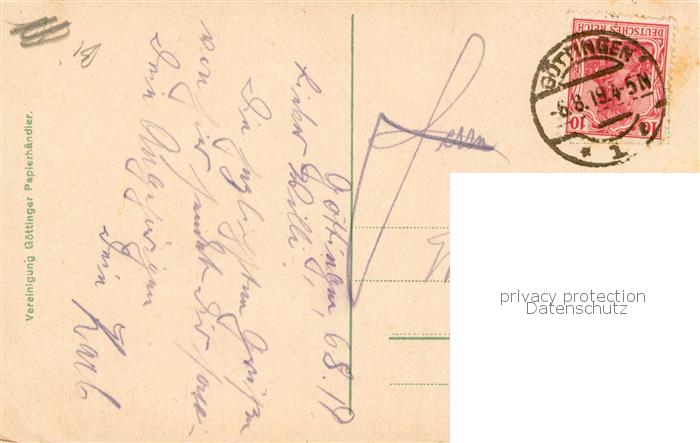 Vereinigung Göttinger Papierhändler.
Göttingen, 6.8.19
Lieber Willi!
Die herzlichsten Grüße
von hier sendet Dir sowie
Dein Angehörigen
Dein Karl
Herrn
DEUTSCHES REICH
10 10
GÖTTINGEN
-6.8.19.4-5N
* 1
privacy protection
Datenschutz